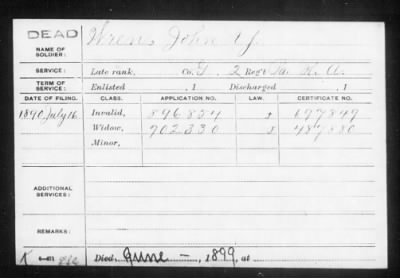 DEAD
NAME OF SOLDIER: Wren, John Y.
SERVICE: Late rank, Co. G, 2 Reg't Pa. H. A.
TERM OF SERVICE: Enlisted , 1 Discharged , 1
DATE OF FILING. CLASS. APPLICATION NO. LAW. CERTIFICATE NO.
1890, July 16 Invalid, 896854 677847
Widow, 702330 487880
Minor,
ADDITIONAL SERVICES:
REMARKS:
Died June — , 1899, at